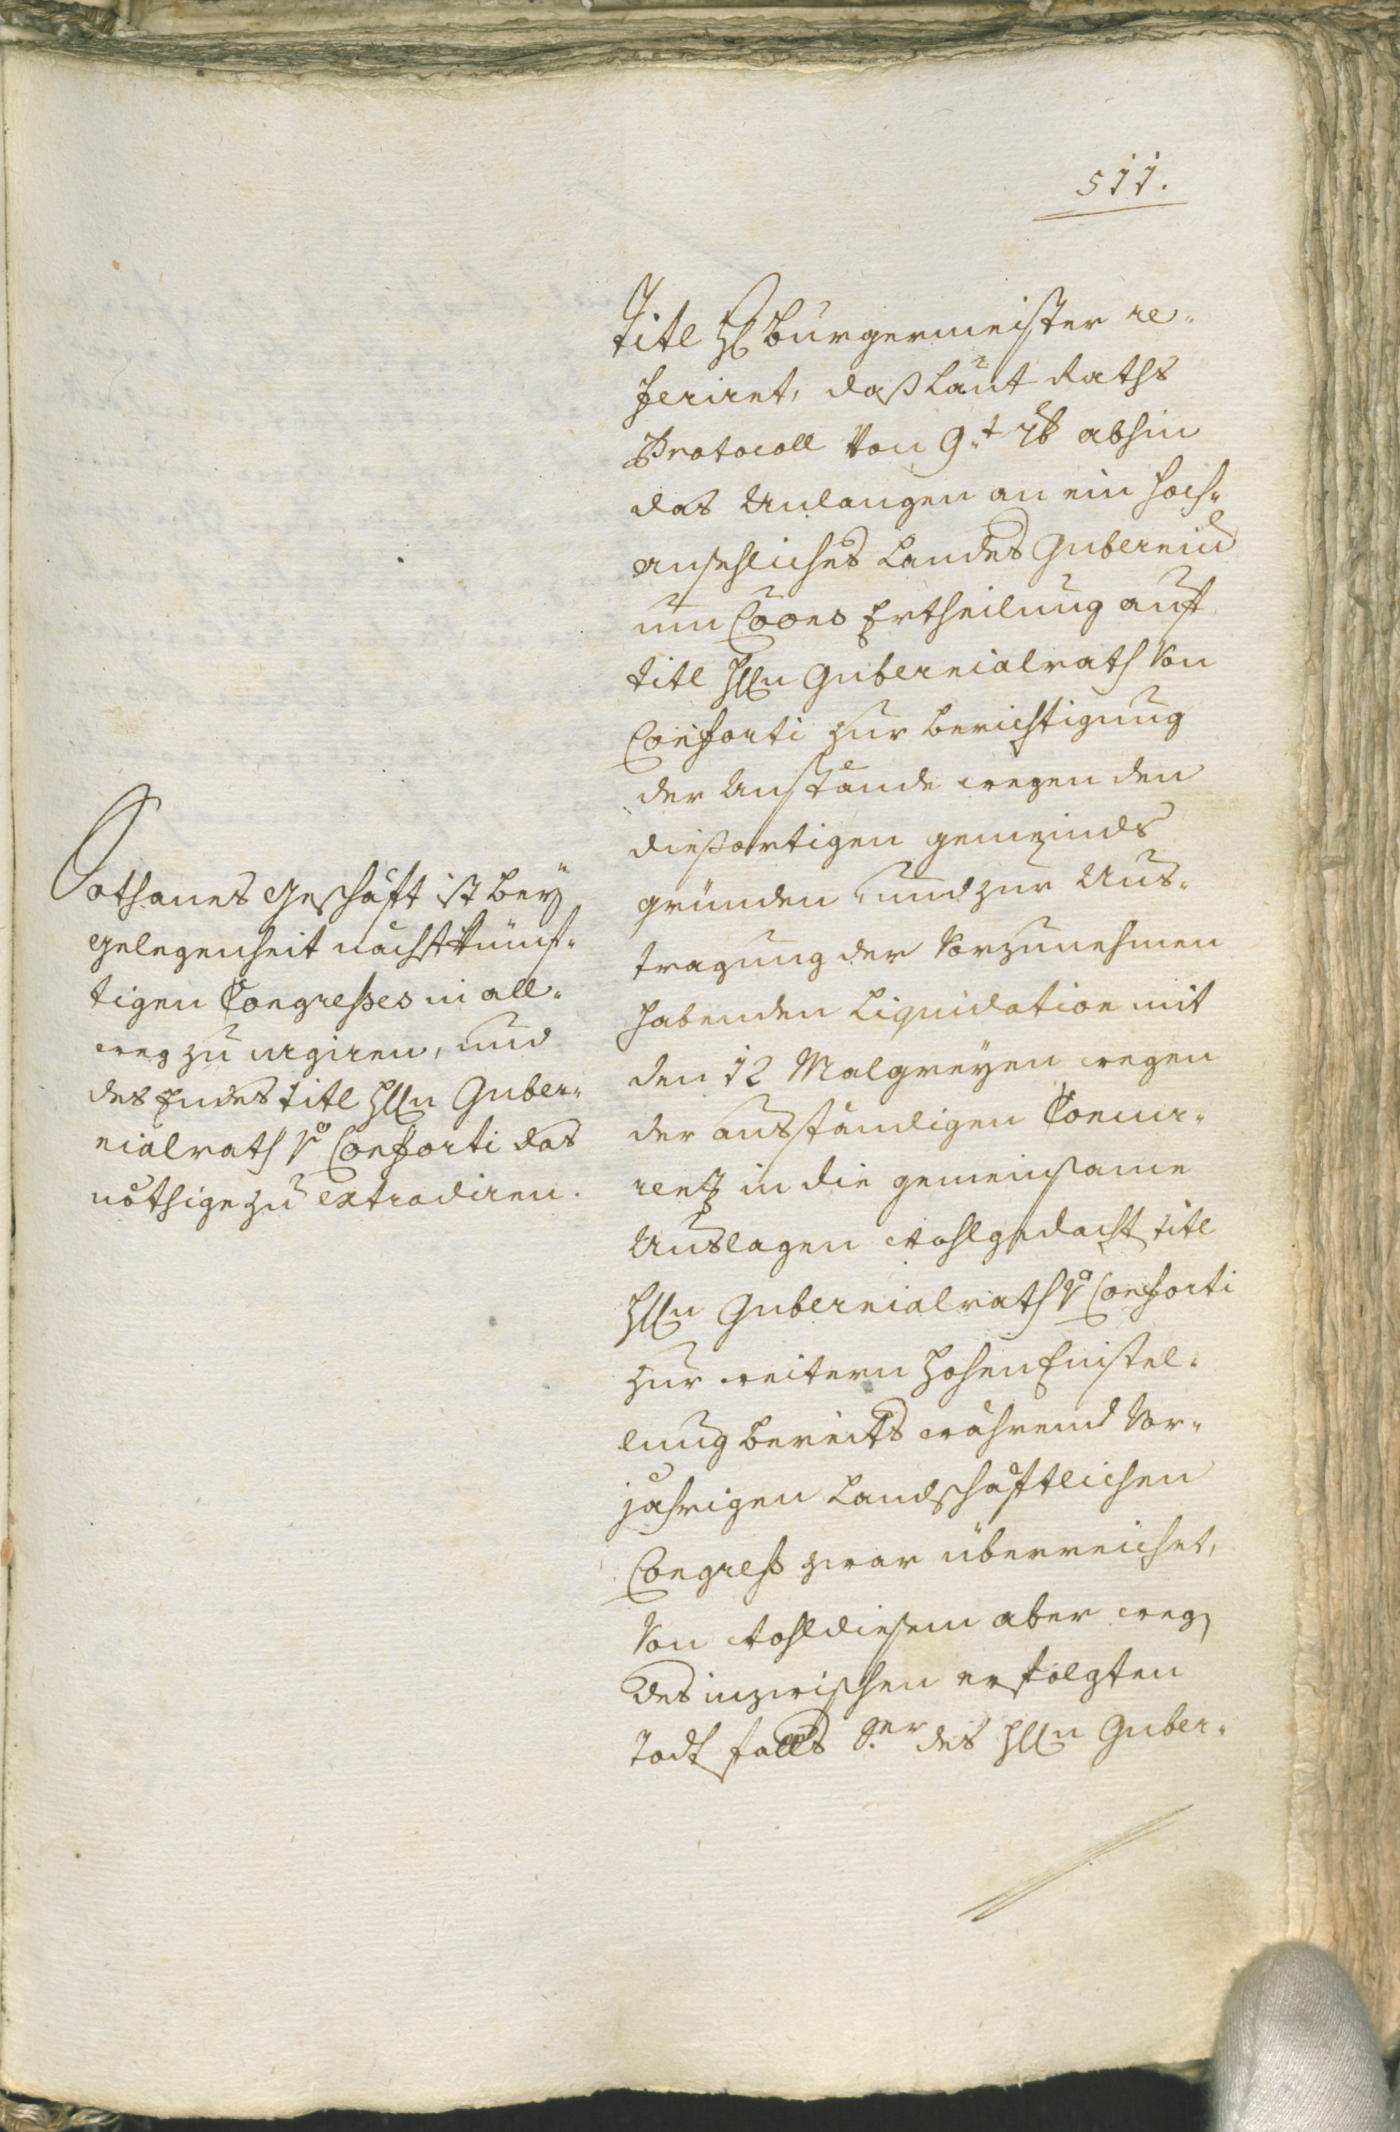 511.
Titl H: Burgermeister re-
feriret, daß laut Raths
Protocoll von 9.t 7b abhin
das Anlangen an ein hoch-
ansehliches Landes Gubernium
um Coōns Ertheilung auf
titl H: Gubernialrath von
Conforti zur berichtigung
der Anstände wegen den
dießortigen gemeinds
gründen, und zur Aus-
tragung der vorzunehmen
habenden Liquidation mit
den 12 Malgreyen wegen
der ausständigen Concur-
renz in die gemeinsame
Auslagen wohlgedacht titl
H: Gubernialrath v Conforti
zur weitern hohen Einstel-
lung bereits während vor-
jährigen Landschaftlichen
Congreß zwar überreichet,
von wohldiesem aber weg
des inzwischen erfolgten
Todtfalls des H: Guber-
Sothanes geschäft ist bey
gelegenheit nächst künf-
tigen Congresses in all-
weg zu urgiren, und
des Endes titl H: Guber-
nialrath v Conforti das
nöthige zu extradiren.